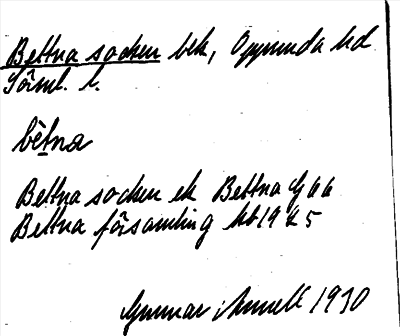 Bettna socken bek, Oppunda hd
Sörml. l.
bètna
Bettna socken ek Bettna G 66
Bettna församling hb 19 5
Gunnar 1930